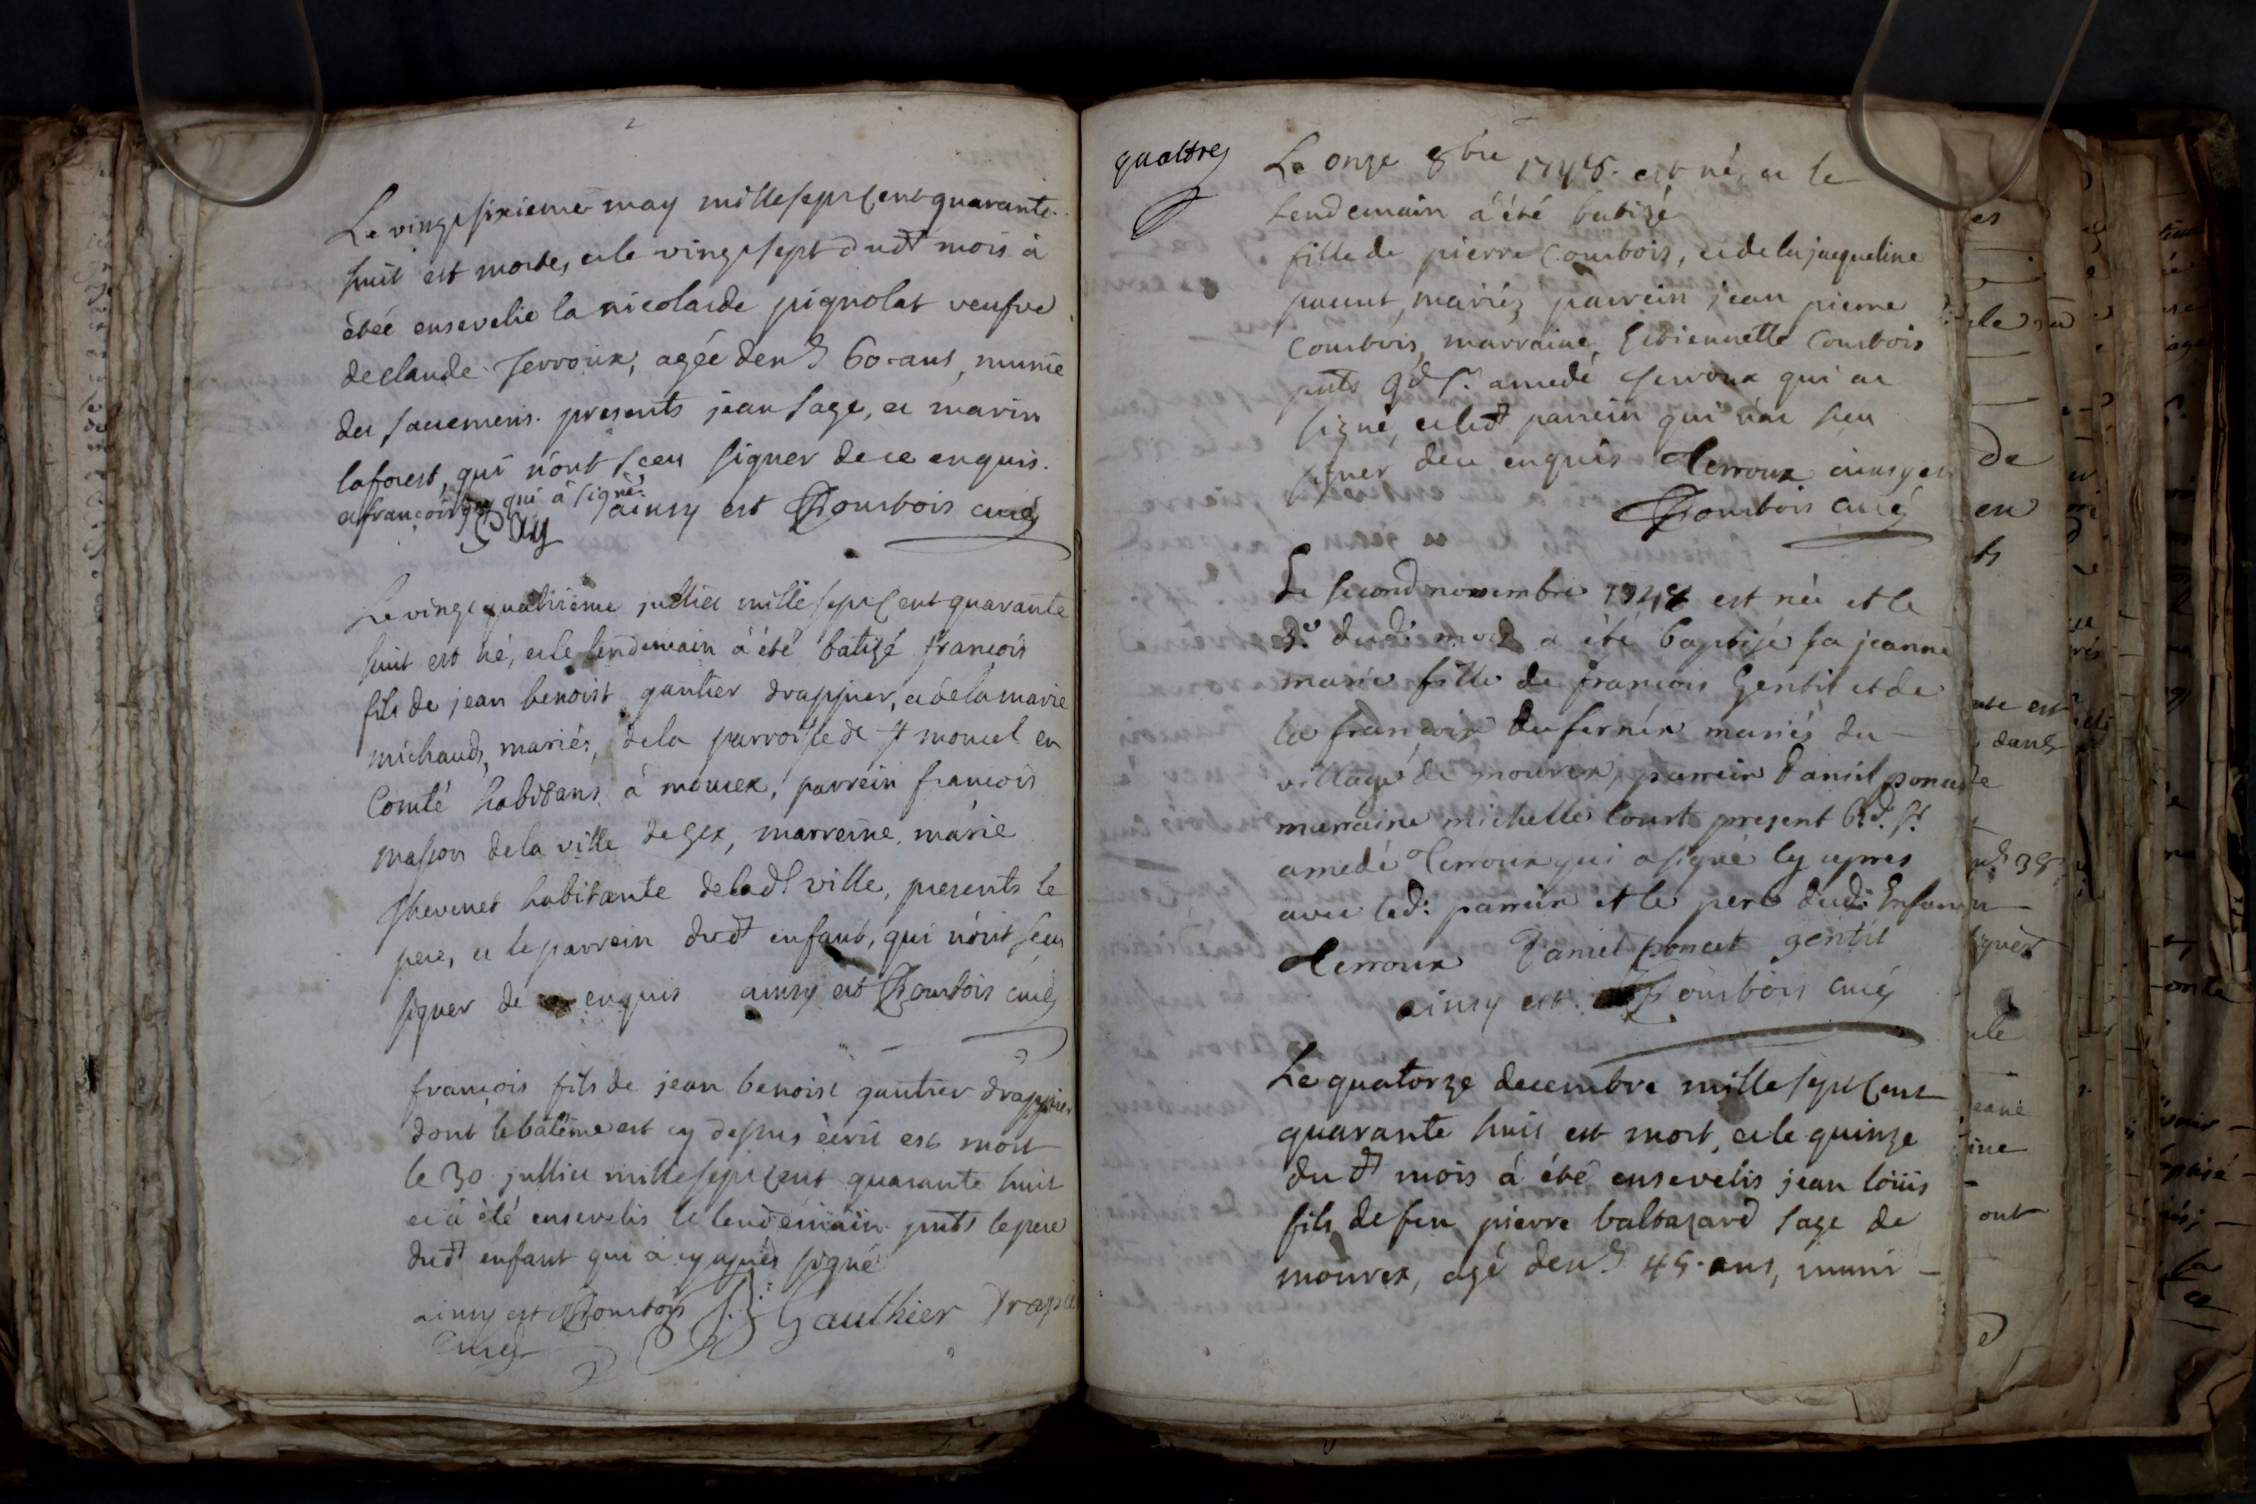 Le vingt sixieme may mille sept Cent quarante
huit est morte, et le vingt sept dudt mois à
étée ensevelie la nicolarde pignolat veufve
de claude Jerroux, agée denv 60 ans, munie
des sacremens. presents jean sage, et marin
laforest, qui n'ont sceu signer de ce enquis.
et françois gay qui à signé. ainsy est Courbois curé
Gay
Le vingt quatrieme julliet mille sept Cent quarante
huit est né, et le lendemain à été batizé françois
fils de jean benoist gautier drappier, et de la marie
michaud, mariés, de la parroisse de st moucel en
Comté habitans à mourex, parrein françois
masson de la ville de gex, marreine marie
thevenet habitante de ladt ville, presents le
pere, et le parrein dudt enfant, qui n'ont sceu
signer de enquis ainsy est Courbois curé
françois fils de jean benoist gautier drappier
dont le batême est cy dessus écrit est mort
le 30 julliet mille sept Cent quarante huit
et à été ensevelis le lendemain pnts le pere
dudt enfant qui à cy après signé
ainsy est Courbois J: B: Gauthier Drapie
Curé
quattre
Le onze 8bre 1748. est né, et le
lendemain à été batizé
fille de pierre Courbois, et de la jacqueline
pacent, mariez parrein jean pierre
Courbois, marraine, Estiennette Courbois
pnts Rd Sr. amedé Jerroux qui at
signé, et ledt parrein qui n'at sceu
signer de ce enquis Jerroux ainsy est
Courbois curé
Le second novembre 1748 est née et le
3e dudi: mois a été baptisé la jeanne
marie fille de francois Gentil et de
la françoise du fernex mariés du
village de mourex, parrein daniel poncet
marraine michelle Court present Rd. Sr.
amedé Jerroux qui a signé cy apres
avec led: parrein et le pere dud: Enfant
Jerroux Daniel poncet gentil
ainsy est. Courbois curé
Le quatorze decembre mille sept Cent
quarante huit est mort, et le quinze
du dt mois à été ensevelis jean loüis
fils de feu pierre baltazard sage de
mourex, agé denv 45. ans, muni